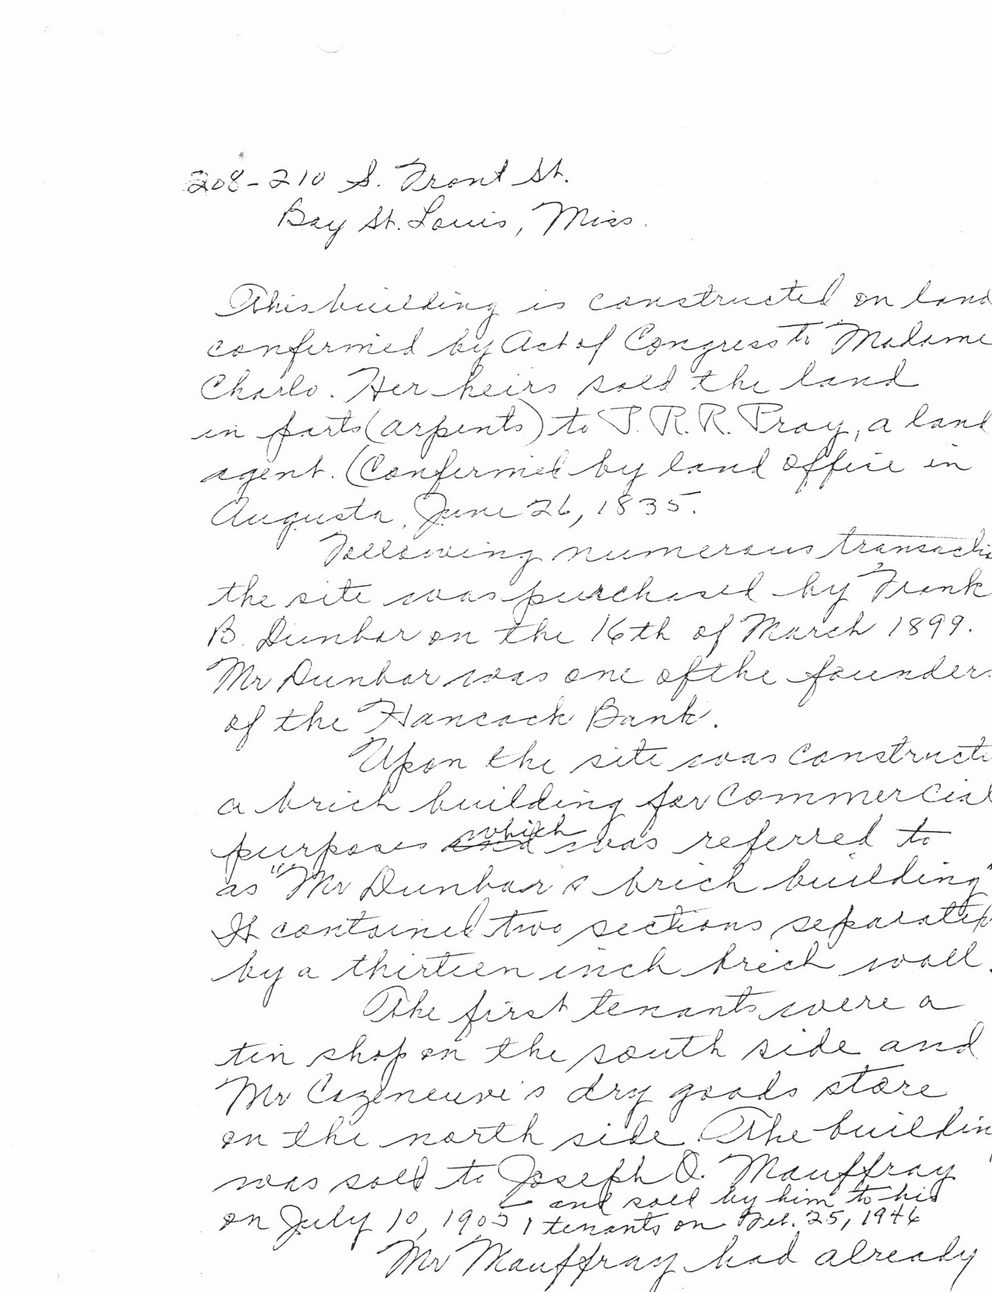 208-210 S. Front St.
Bay St. Louis, Miss.
This building is constructed on land
confirmed by Act of Congress to Madame
Charlo. Her heirs sold the land
in parts (arpents) to P. R. R. Pray, a land
agent. (Confirmed by land office in
Augusta, June 26, 1835.
Following numerous transacti
the site was purchased by Frank
B. Dunbar on the 16th of March 1899.
Mr Dunbar was one of the founders
of the Hancock Bank.
Upon the site was constructe
a brick building for commercial
purposes which was referred to
as "Mr Dunbar's brick building"
It contained two sections separated
by a thirteen inch brick wall.
The first tenants were a
tin shop on the south side and
Mr Cazeneuve's dry goods store
on the north side. The buildin
was sold to Joseph O. Mauffray
and sold by him to his
on July 10, 1905 tenants on Feb. 25, 1946
Mr Mauffray had already